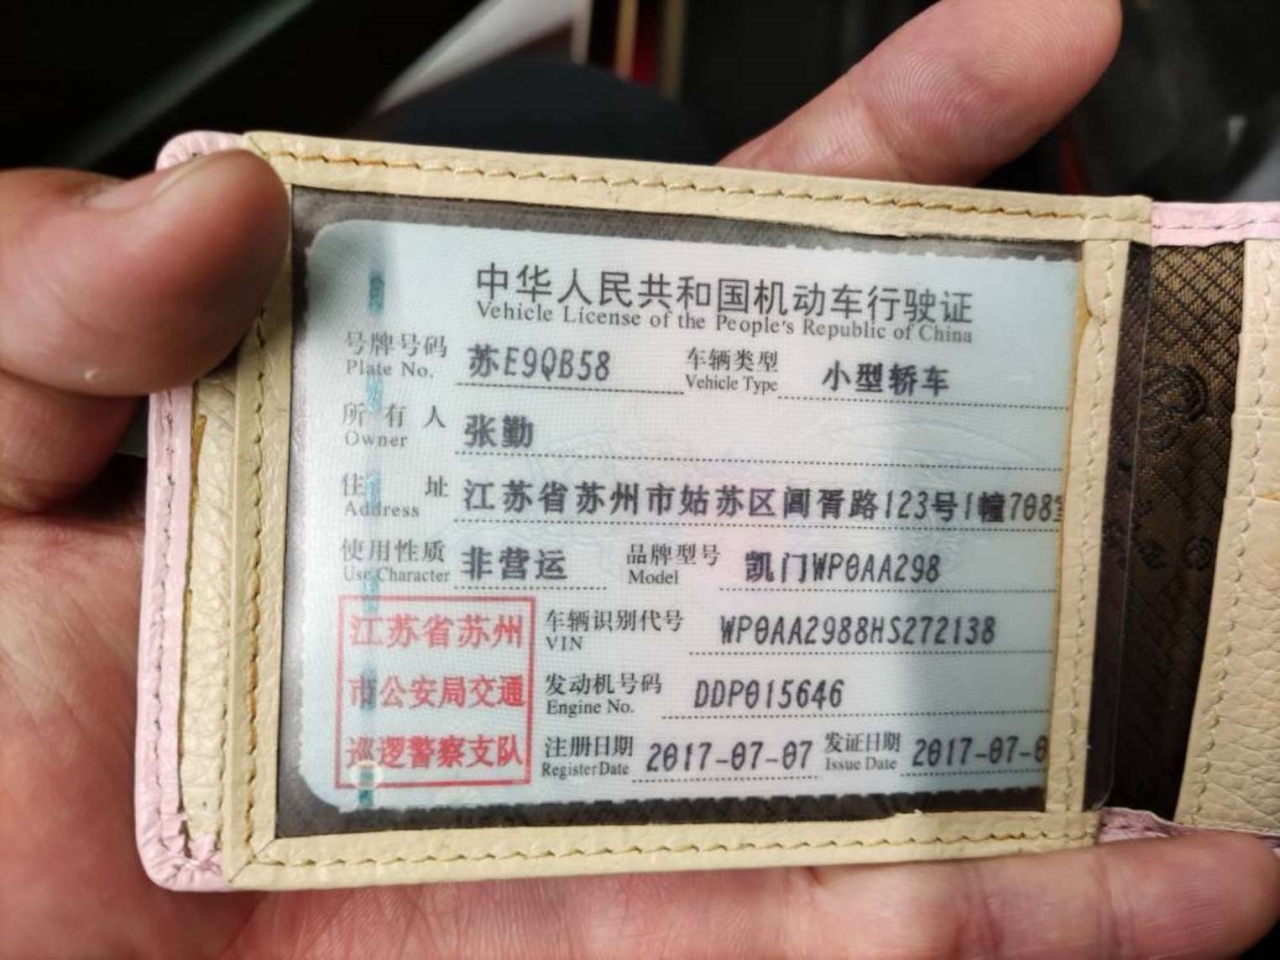 中华人民共和国机动车行驶证
Vehicle License of the People's Republic of China
号牌号码 苏E9QB58 车辆类型 小型轿车
Plate No. Vehicle Type
所有人 张勤
Owner
住址 江苏省苏州市姑苏区阊胥路123号1幢708室
Address
使用性质 非营运 品牌型号 凯门WP0AA298
Use Character Model
江苏省苏州
市公安局交通
巡逻警察支队
车辆识别代号 WP0AA2988HS272138
VIN
发动机号码 DDP015646
Engine No.
注册日期 2017-07-07 发证日期 2017-07-0
Register Date Issue Date